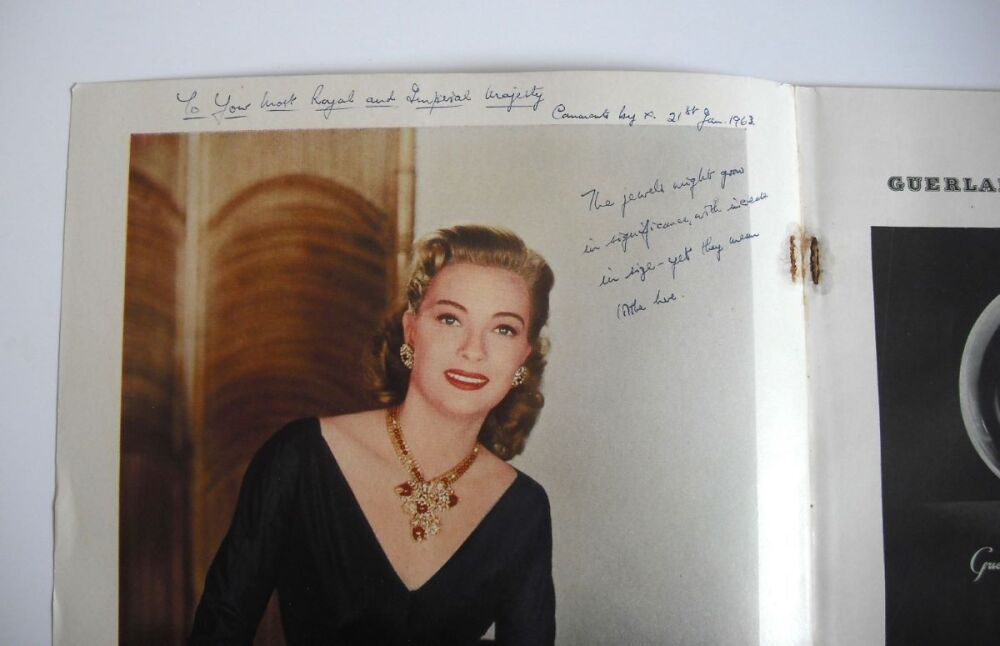 To Your Most Royal and Imperial Majesty
Comments by x. 21st Jan. 1963
The jewels might grow
in significance, with increase
in size - yet they mean
little here.
GUERLA
Gue